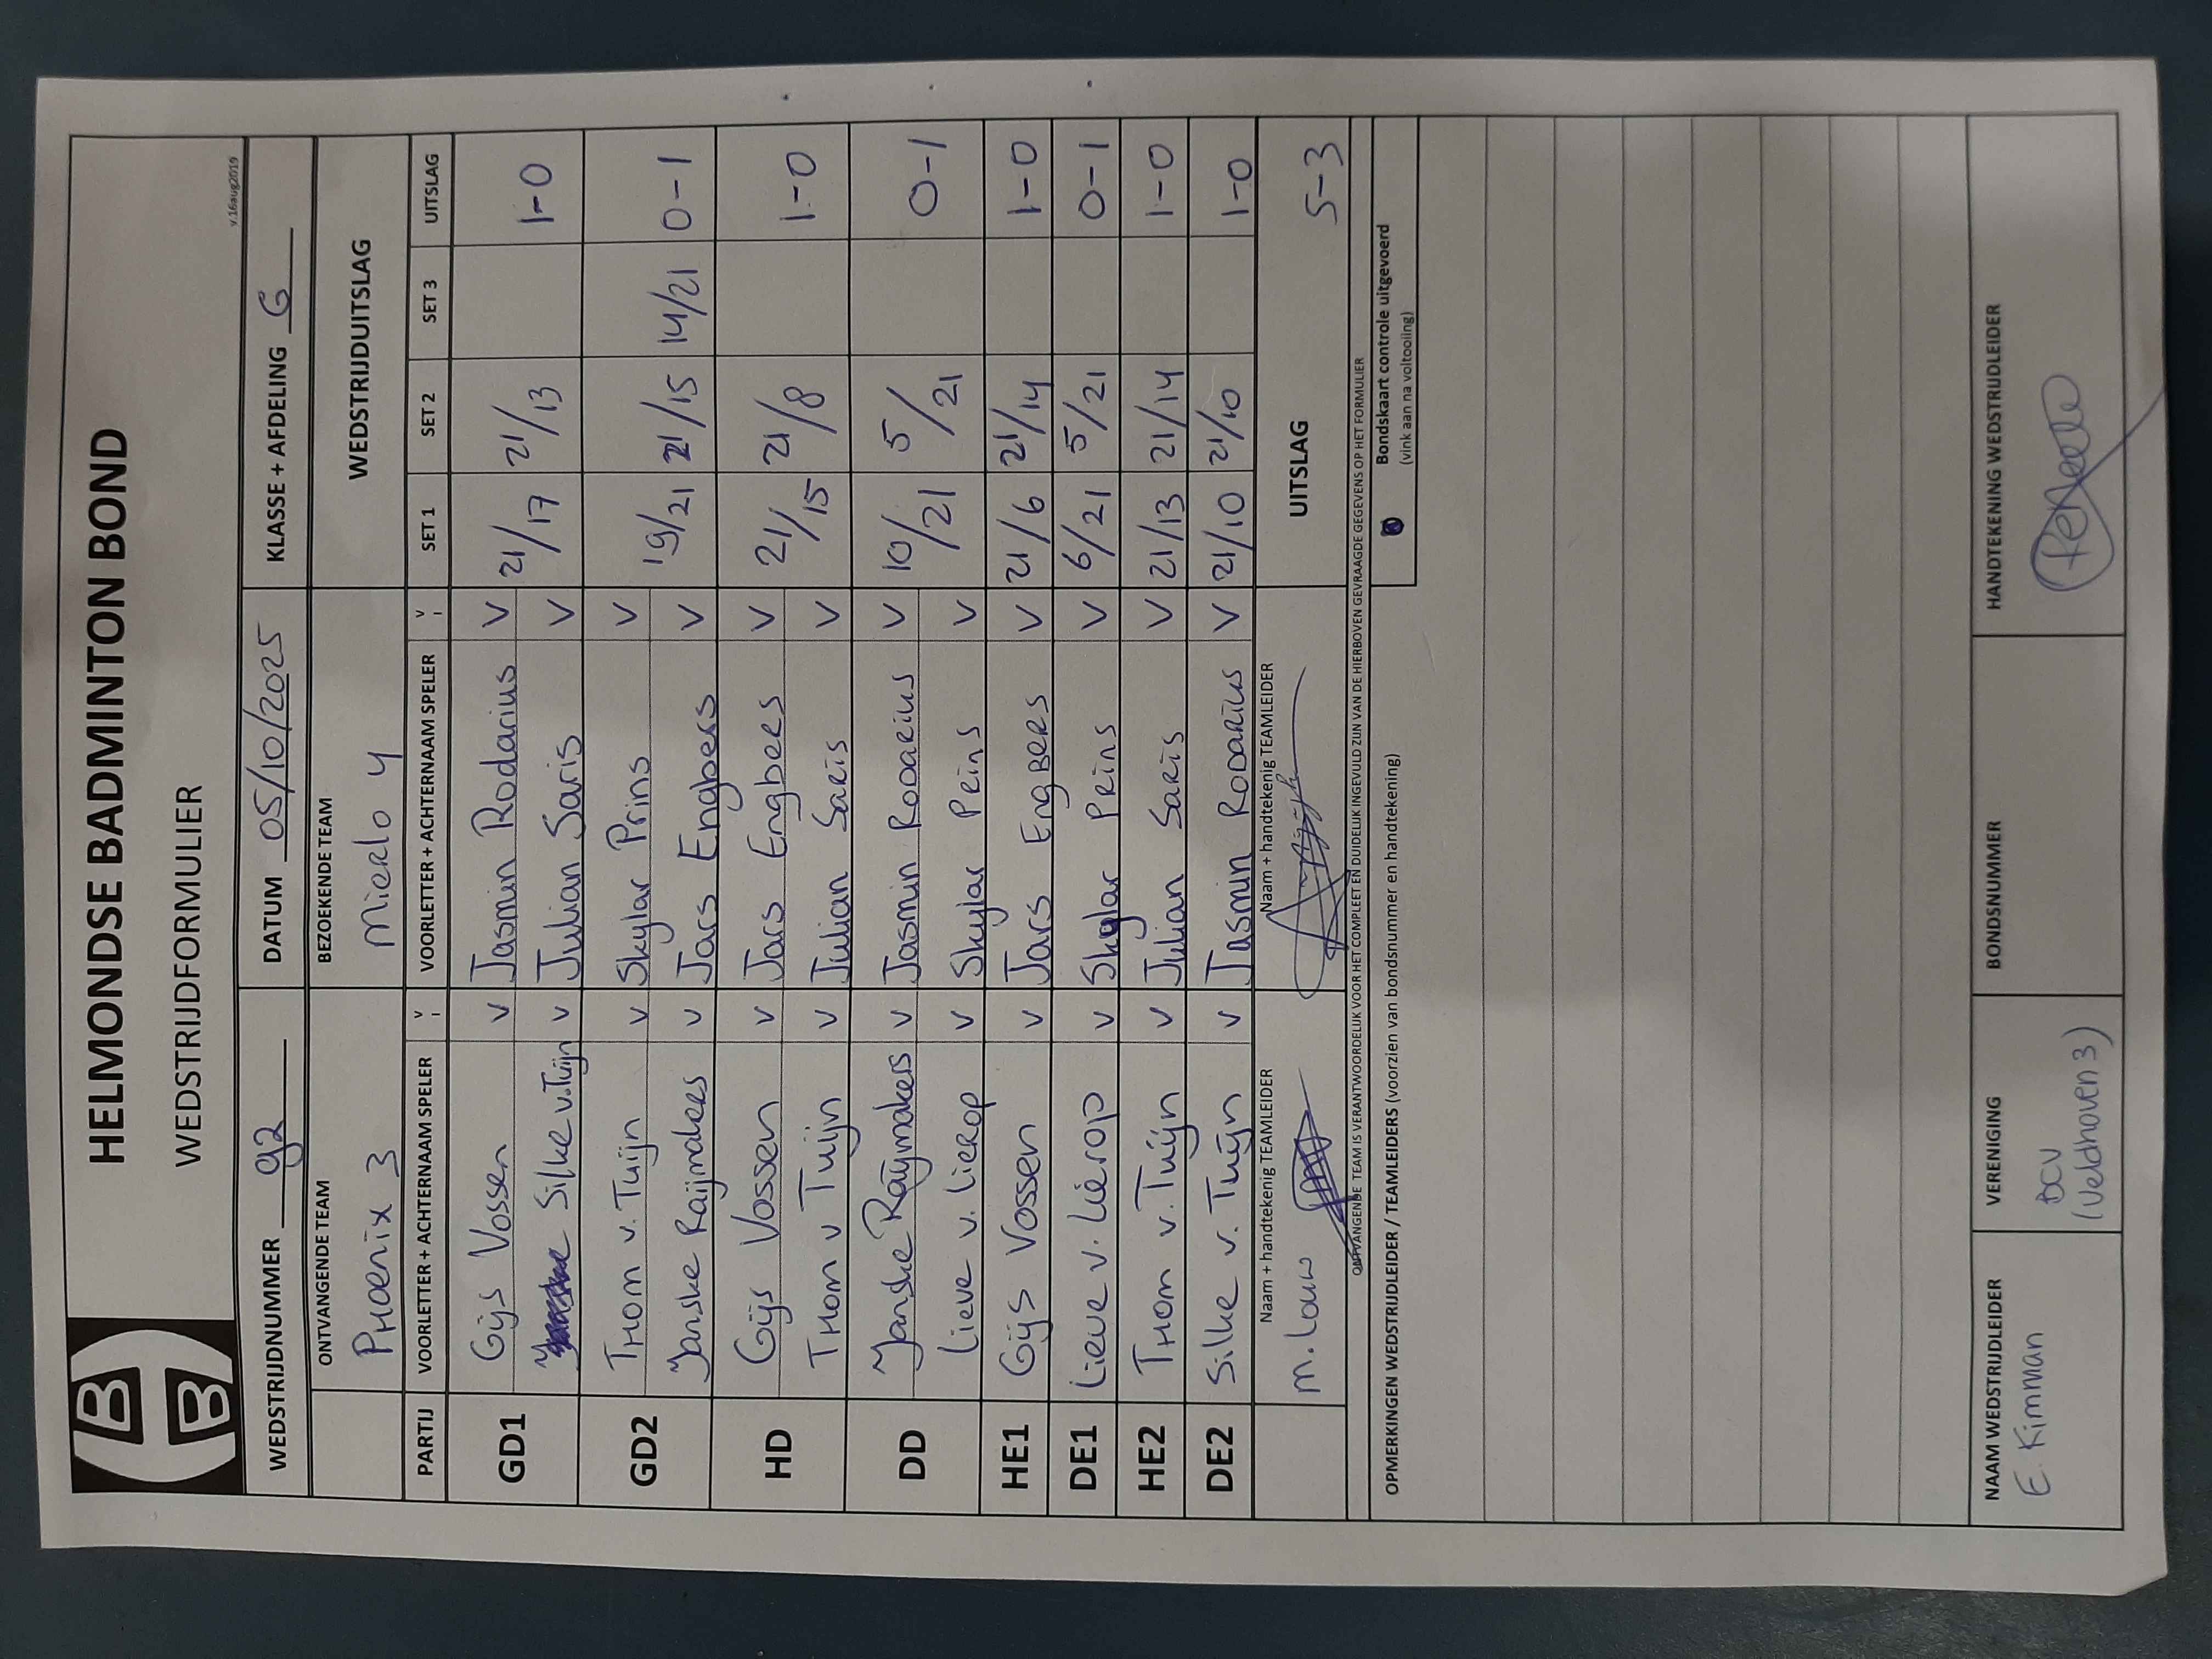 HELMONDSE BADMINTON BOND
WEDSTRIJDFORMULIER
v.16aug2019
WEDSTRIJDNUMMER 92 DATUM 05/10/2025 KLASSE + AFDELING 6
ONTVANGENDE TEAM BEZOEKENDE TEAM WEDSTRIJDUITSLAG
PHOENIX 3 MIERLO 4
PARTIJ VOORLETTER + ACHTERNAAM SPELER V VOORLETTER + ACHTERNAAM SPELER V SET 1 SET 2 SET 3 UITSLAG
GD1 Gijs Vossen V Jasmin Rodarius V 21/17 21/13 1-0
Silke v.Tuijn V Julian Saris V
GD2 THOM v. Tuijn V Skylar Prins V 19/21 21/15 14/21 0-1
Janske Raijmakers V Jars Engbers V
HD Gijs Vossen V Jars Engbers V 21/15 21/8 1-0
THOM v Tuijn V Julian Saris V
DD Janske Raijmakers V Jasmin Rodarius V 10/21 5/21 0-1
Lieve v. Lierop V Skylar Prins V
HE1 Gijs Vossen V Jars Engbers V 21/6 21/14 1-0
DE1 Lieve v. Lierop V Skylar Prins V 6/21 5/21 0-1
HE2 THOM v. Tuijn V Julian Saris V 21/13 21/14 1-0
DE2 Silke v. Tuijn V Jasmin Rodarius V 21/10 21/10 1-0
Naam + handtekenig TEAMLEIDER Naam + handtekenig TEAMLEIDER UITSLAG 5-3
M. Louw
ONTVANGENDE TEAM IS VERANTWOORDELIJK VOOR HET COMPLEET EN DUIDELIJK INGEVULD ZIJN VAN DE HIERBOVEN GEVRAAGDE GEGEVENS OP HET FORMULIER
OPMERKINGEN WEDSTRIJDLEIDER / TEAMLEIDERS (voorzien van bondsnummer en handtekening)
Bondskaart controle uitgevoerd
(vink aan na voltooiing)
NAAM WEDSTRIJDLEIDER VERENIGING BONDSNUMMER HANDTEKENING WEDSTRIJDLEIDER
E. Kimman BCV
(Veldhoven 3)